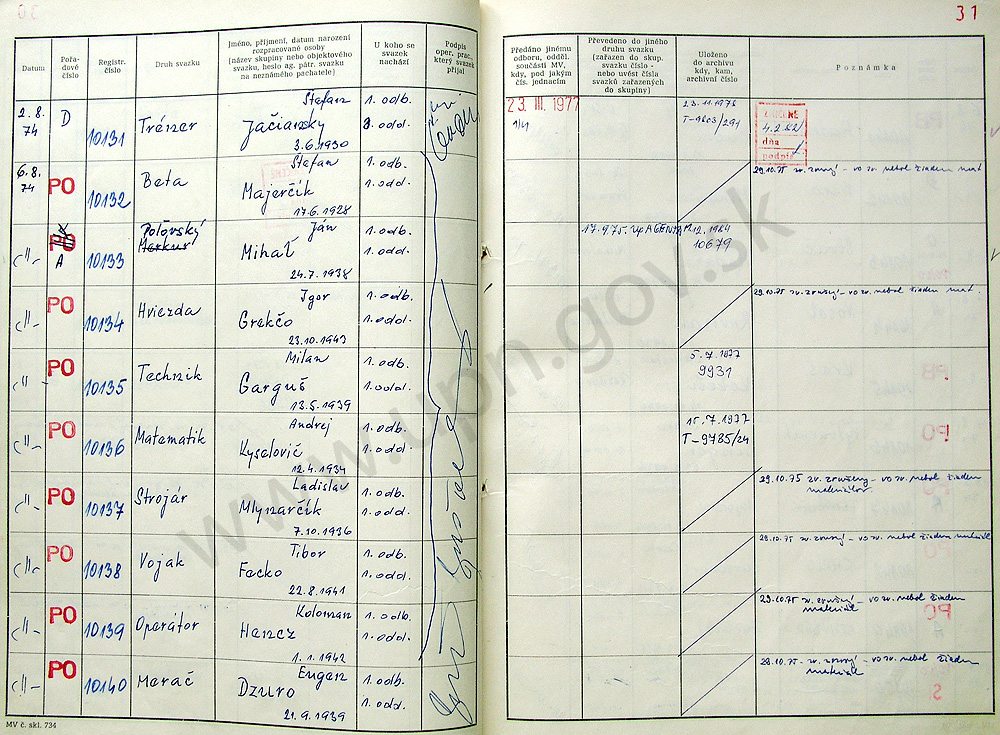 31
Datum
Pořa-
dové
číslo
Registr.
číslo
Druh svazku
Jméno, příjmení, datum narození
rozpracované osoby
(název skupiny nebo objektového
svazku, heslo ag. pátr. svazku
na neznámého pachatele)
U koho se
svazek
nachází
Podpis
oper. prac.,
který svazek
přijal
Předáno jinému
odboru, odděl.
součásti MV,
kdy, pod jakým
čís. jednacím
Převedeno do jiného
druhu svazku
(zařazen do skup.
svazku číslo -
nebo uvést čísla
svazků zařazených
do skupiny)
Uloženo
do archivu
kdy, kam,
archivní číslo
Poznámka
2.8.
74
D
10131
Tréner
Štefan
Jačiansky
3.6.1930
1. odb.
3. odd.
23. III. 1977
T-1803/291
4.2.82
dňa
podpis
6.8.
74
PO
10132
Beta
Štefan
Majerčík
17.6.1928
1. odb.
1. odd.
-"-
PO
A
10133
Poľovský
Merkur
Ján
Mihaľ
24.7.1938
1. odb.
1. odd.
10679
-"-
PO
10134
Hviezda
Igor
Grekčo
23.10.1943
1. odb.
1. odd.
-"-
PO
10135
Technik
Milan
Garguš
13.5.1939
1. odb.
1. odd.
5.7.1977
9931
-"-
PO
10136
Matematik
Andrej
Kyselovič
12.4.1934
1. odb.
1. odd.
15.7.1977
T-9785/24
-"-
PO
10137
Strojár
Ladislav
Mlynarčík
7.10.1936
1. odb.
1. odd.
29.10.75 zv. zrušený - vo zv. nebol žiaden
materiálov.
-"-
PO
10138
Vojak
Tibor
Fecko
22.8.1941
1. odb.
1. odd.
29.10.75 zv. zrušený - vo zv. nebol žiaden materiál
-"-
PO
10139
Operátor
Koloman
Hencz
1.1.1942
1. odb.
1. odd.
29.10.75 zv. zrušený - vo zv. nebol žiaden
materiál
-"-
PO
10140
Merač
Eugen
Dzuro
21.9.1939
1. odb.
1. odd.
29.10.75 - zv. zrušený - vo zv. nebol žiaden
materiál
MV č. skl. 734
www.upn.gov.sk